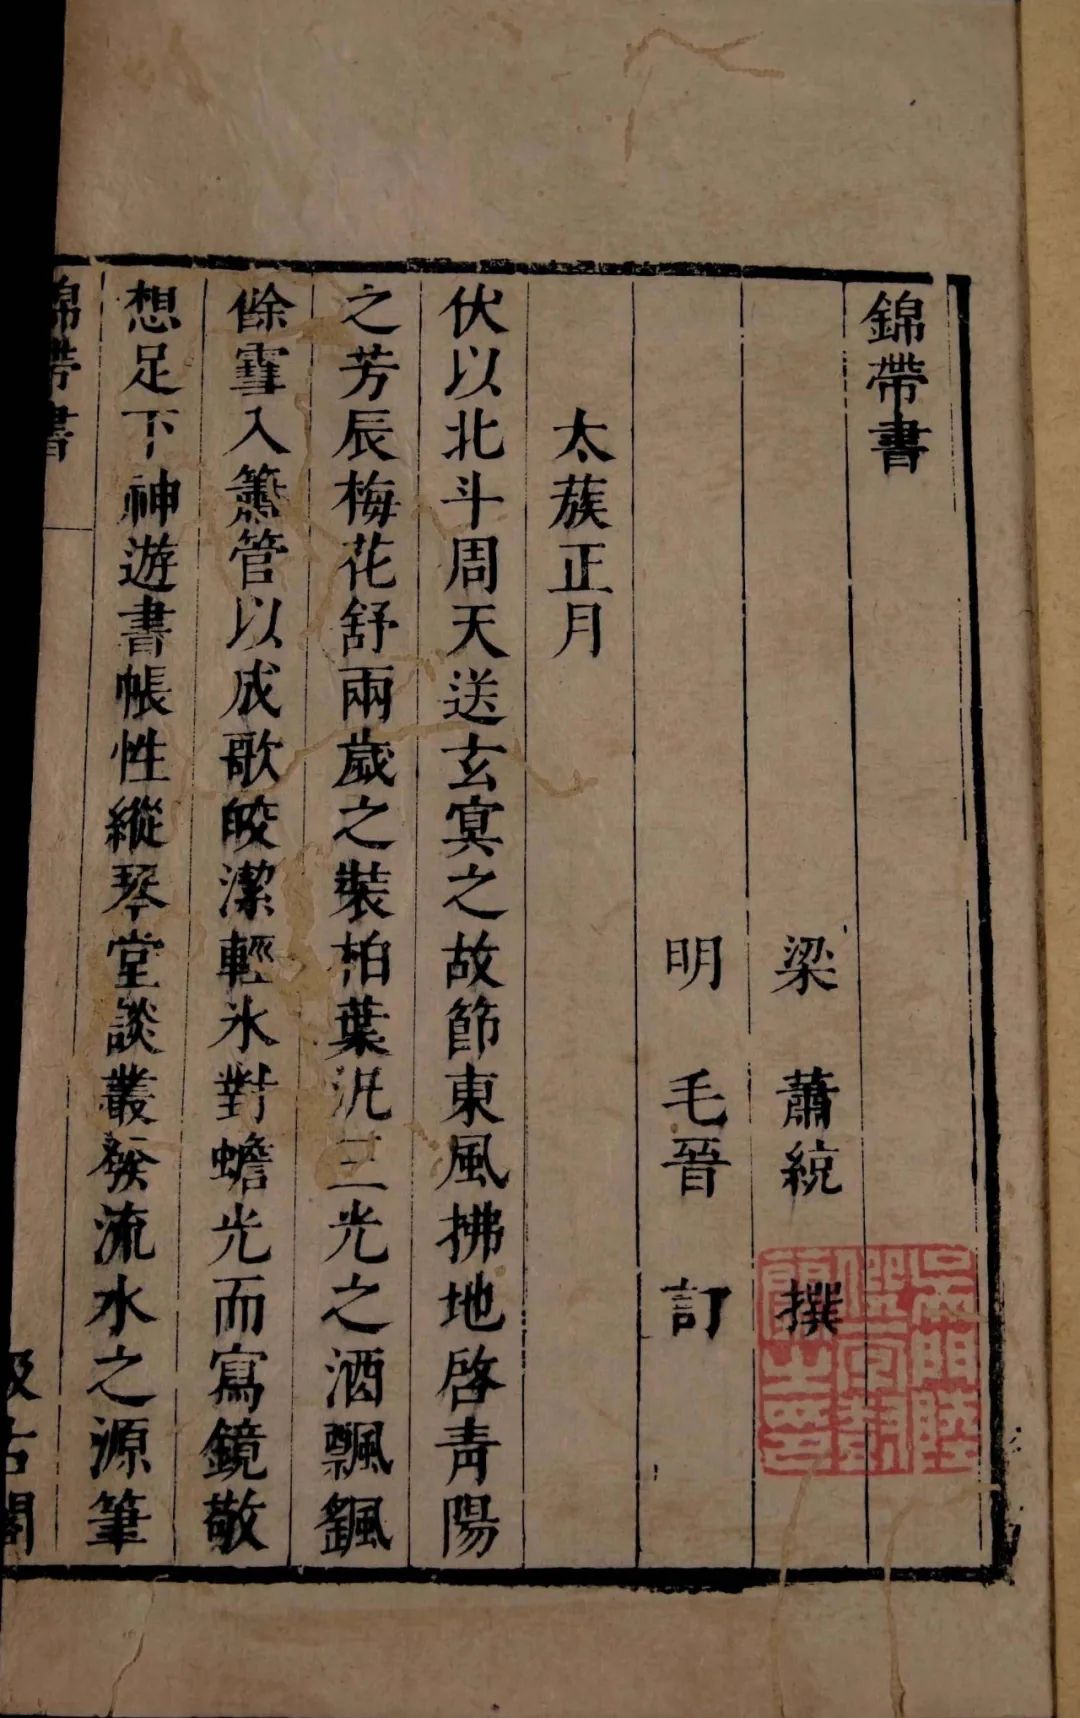 錦帶書
梁 蕭統 撰
明 毛晉 訂
太蔟正月
伏以北斗周天送玄冥之故節東風拂地啓青陽
之芳辰梅花舒兩歲之裝柏葉汎三光之酒飄颻
餘雪入簫管以成歌皎潔輕氷對蟾光而寫鏡敬
想足下神遊書帳性縱琴堂談叢發流水之源筆
錦帶書
汲古閣